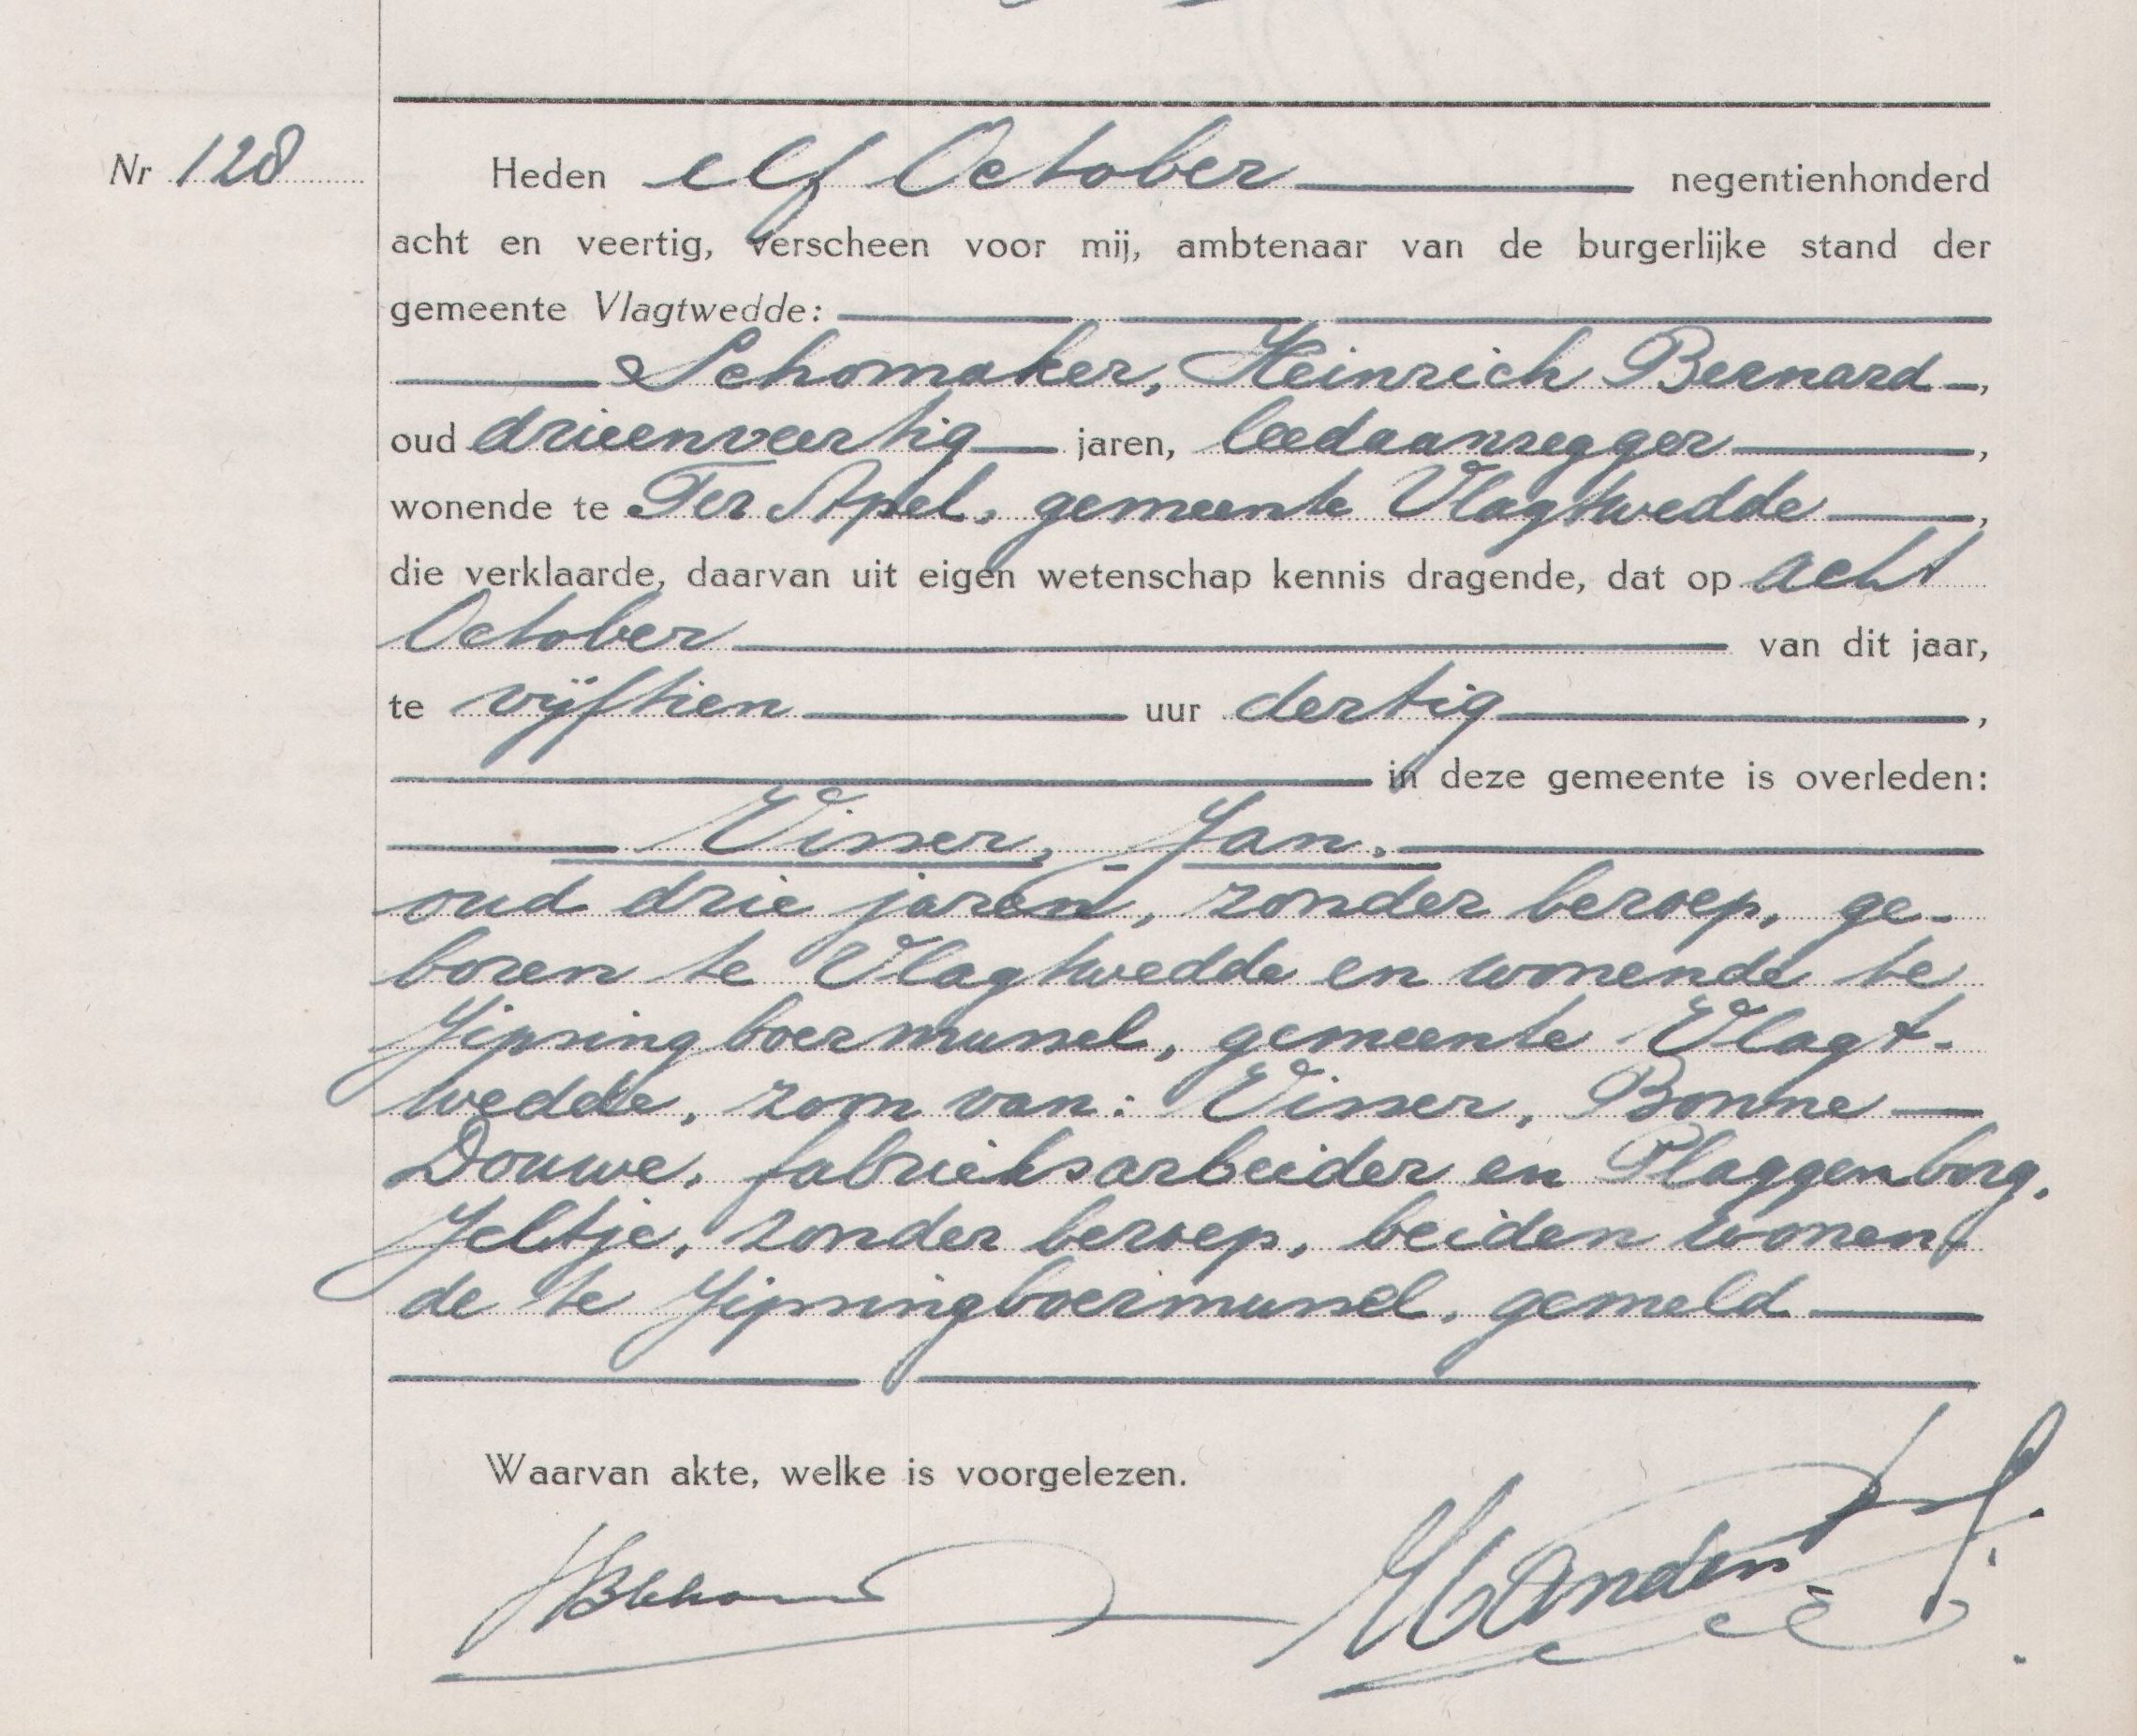 Nr 128
Heden elf October negentienhonderd
acht en veertig, verscheen voor mij, ambtenaar van de burgerlijke stand der
gemeente Vlagtwedde:
Schomaker, Heinrich Bernard,
oud drieenveertig jaren, leedaanzegger,
wonende te Ter Apel, gemeente Vlagtwedde,
die verklaarde, daarvan uit eigen wetenschap kennis dragende, dat op acht
October van dit jaar,
te vijftien uur dertig,
in deze gemeente is overleden:
Visser, Jan,
oud drie jaren, zonder beroep, ge-
boren te Vlagtwedde en wonende te
Jipsingboermussel, gemeente Vlagt-
wedde, zoon van: Visser, Bonne
Douwe, fabrieksarbeider en Plaggenborg,
Jeltje, zonder beroep, beiden wonen-
de te Jipsingboermussel, gemeld
Waarvan akte, welke is voorgelezen.